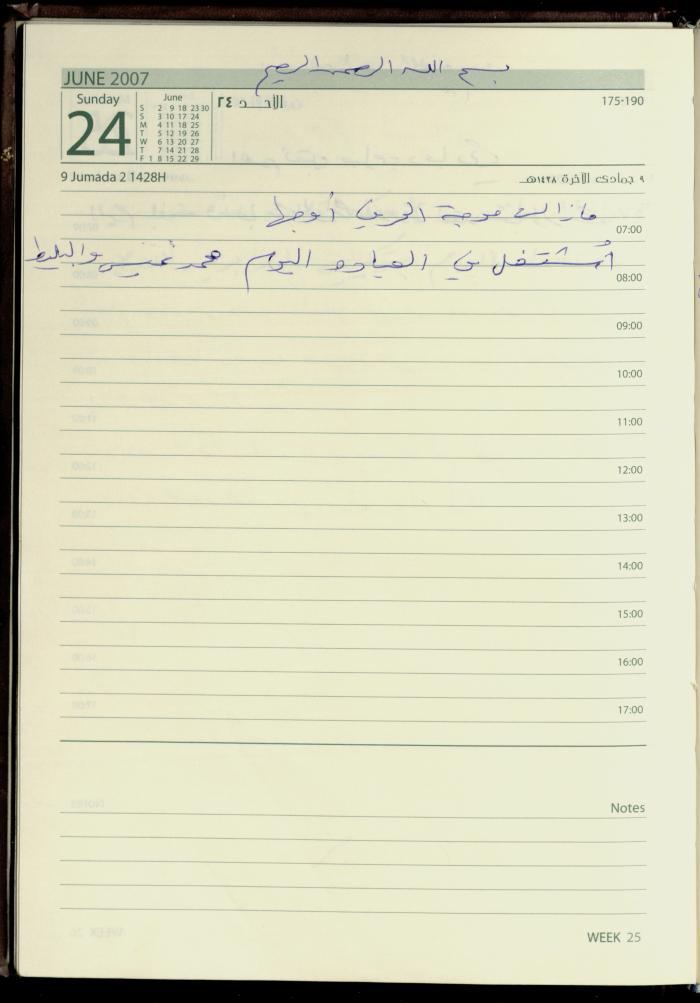 بسم الله الرحمن الرحيم
JUNE 2007
Sunday
24
June
S 2 9 18 23 30
S 3 10 17 24
M 4 11 18 25
T 5 12 19 26
W 6 13 20 27
T 7 14 21 28
F 1 8 15 22 29
الأحد ٢٤
175-190
9 Jumada 2 1428H
٩ جمادى الآخرة ١٤٢٨هـ
مازالت موجة الحر في أوجها
07:00
أشتغل في العيادة اليوم محمد خميس والبليط
08:00
09:00
10:00
11:00
12:00
13:00
14:00
15:00
16:00
17:00
Notes
WEEK 25